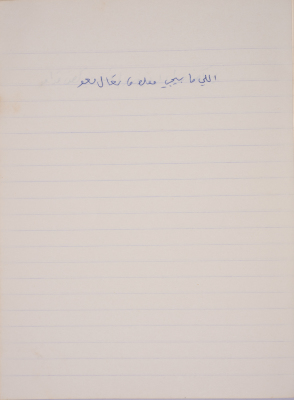 اللي ما يجي معك تعال معو